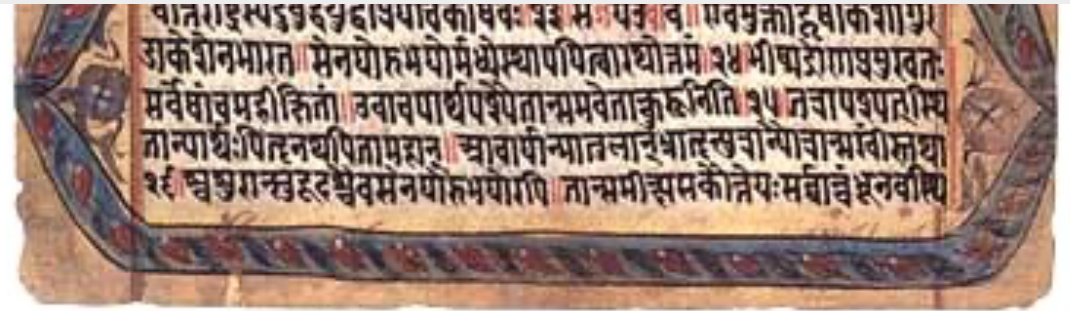 एवमुक्तोहृषीकेशोगु
डाकेशेनभारत॥सेनयोरुभयोर्मध्येस्थापयित्वारथोत्तमं॥२४॥भीष्मद्रोणप्रमुखतः
सर्वेषांचमहीक्षितां॥उवाचपार्थपश्यैतान्समवेतान्कुरूनिति॥२५॥तत्रापश्यत्स्थि
तान्पार्थःपितॄनथपितामहान्॥आचार्यान्मातुलान्भ्रातॄन्पुत्रान्पौत्रान्सखींस्तथा
२६॥श्वशुरान्सुहृदश्चैवसेनयोरुभयोरपि॥तान्समीक्ष्यसकौन्तेयःसर्वान्बंधूनवस्थि